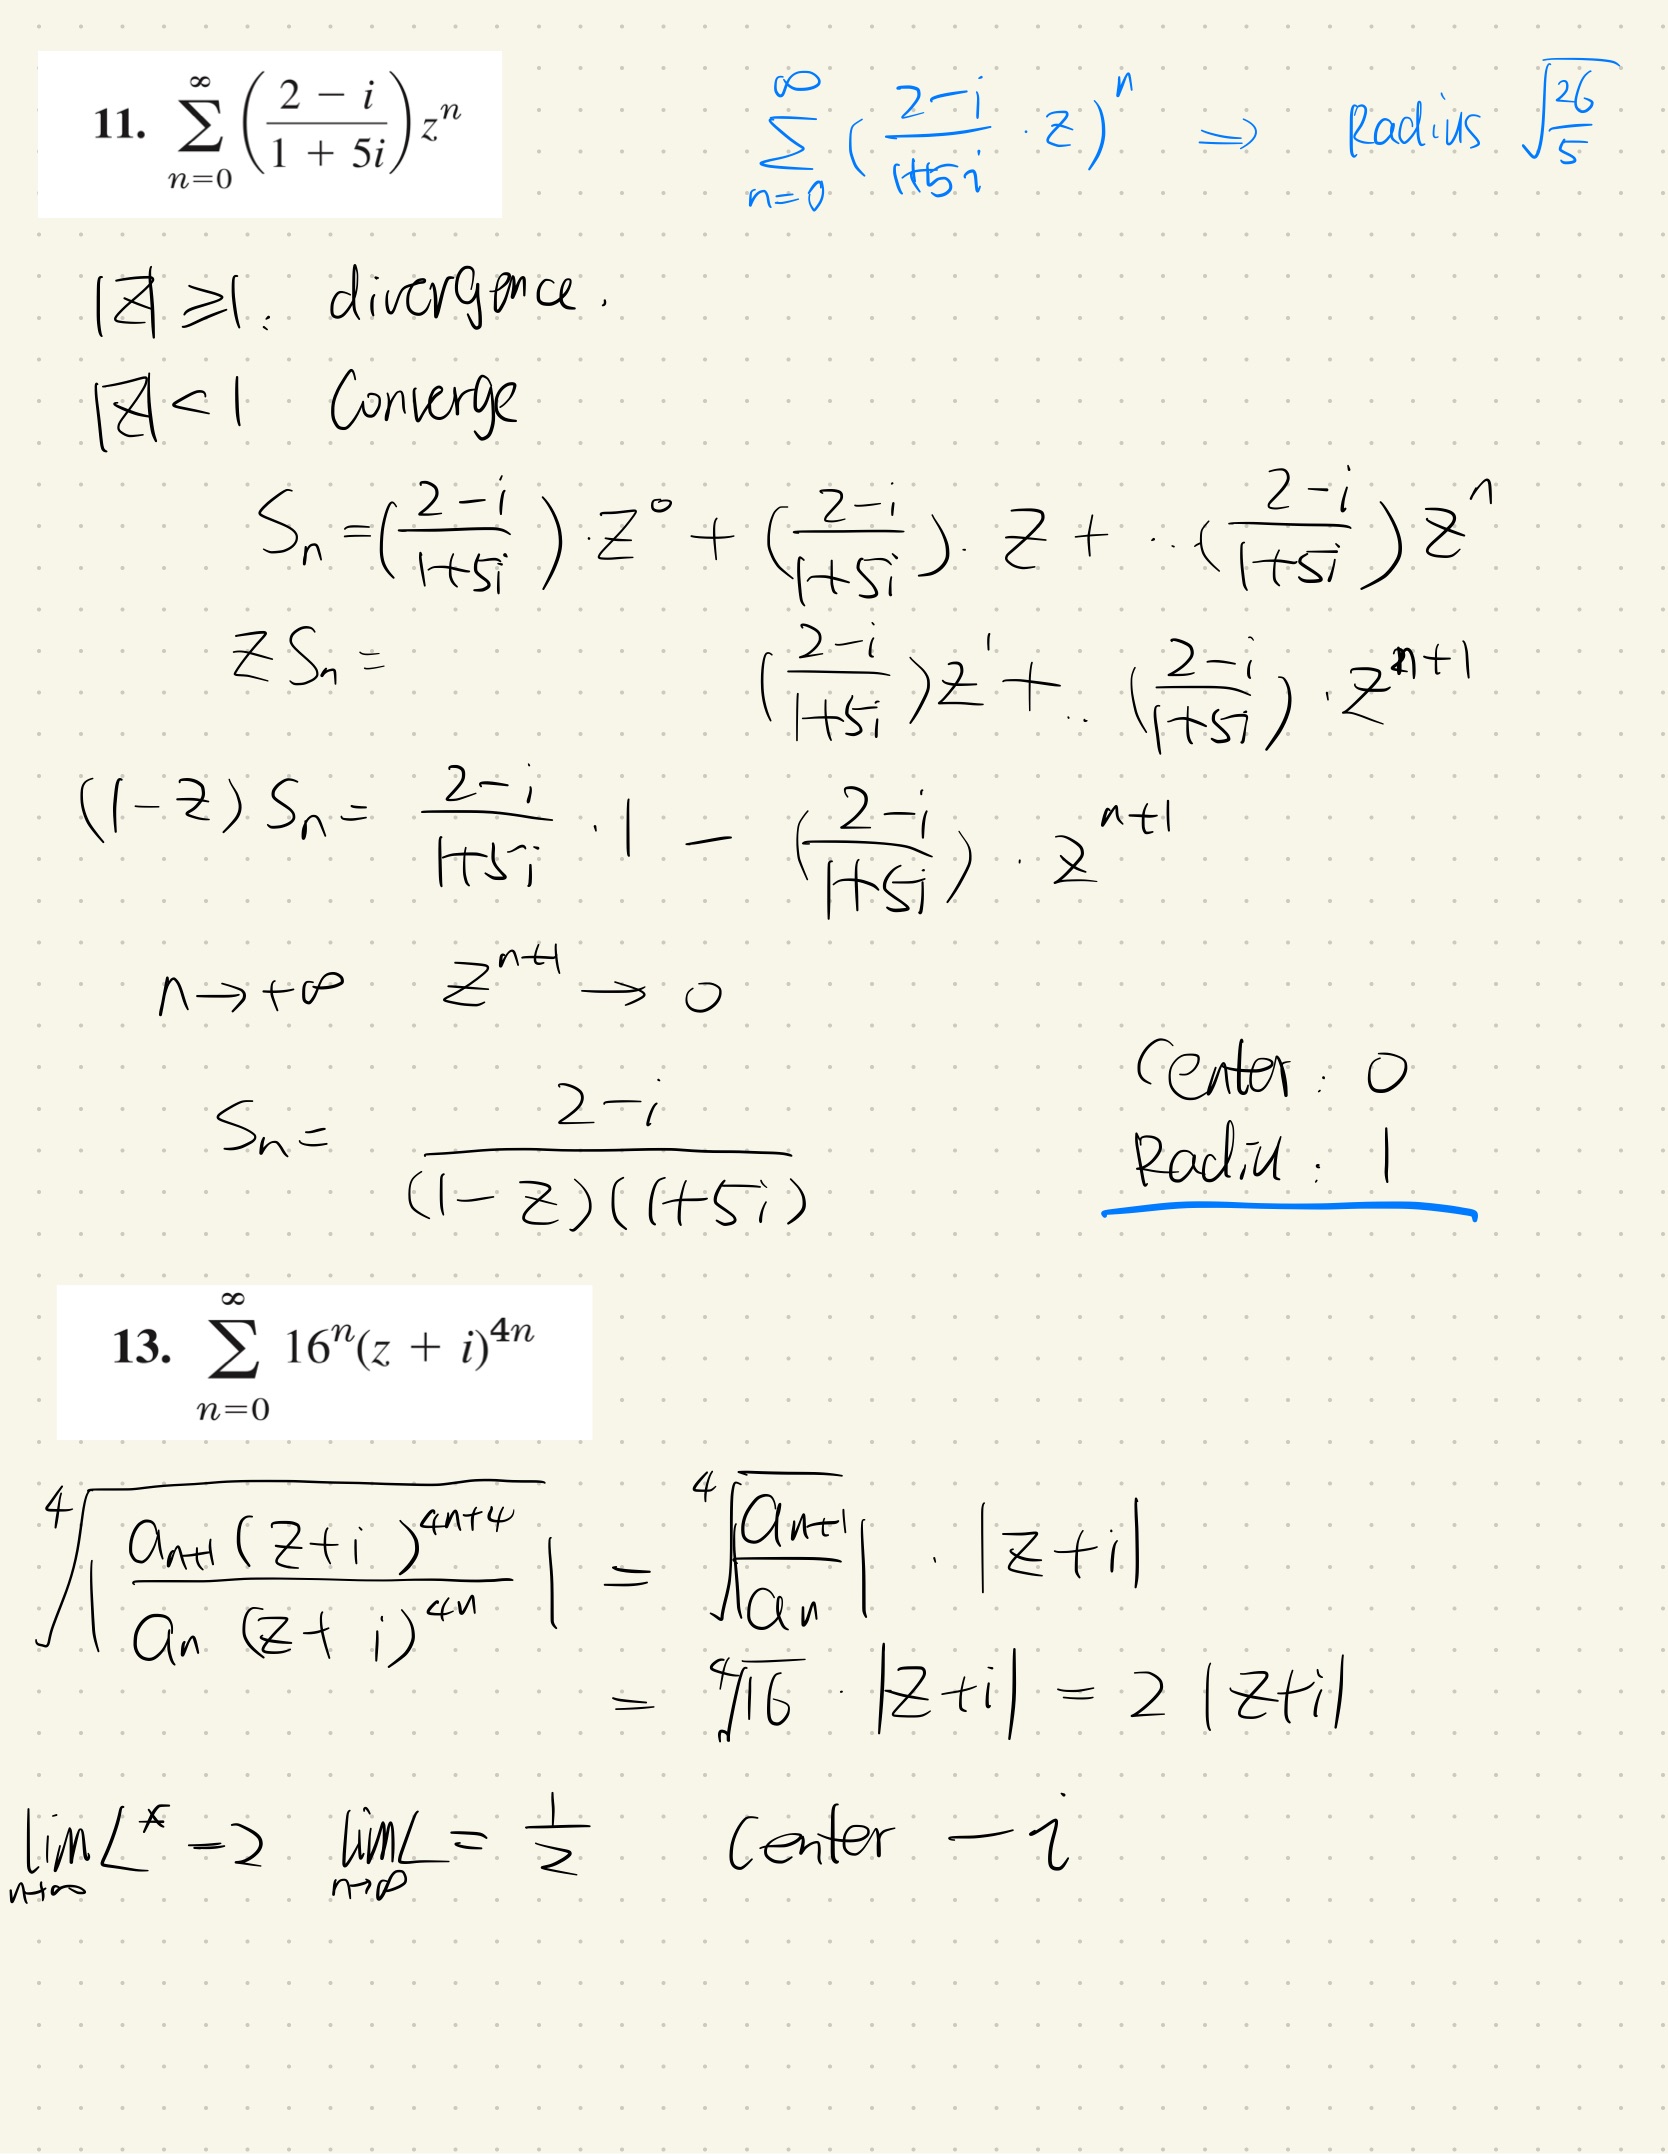 11. \sum_{n=0}^{\infty} \left( \frac{2 - i}{1 + 5i} \right) z^n
\sum_{n=0}^{\infty} \left( \frac{2-i}{1+5i} \cdot z \right)^n \Rightarrow Radius \sqrt{\frac{26}{5}}
|z| \geqslant 1: divergence.
|z| < 1 Converge
S_n = \left( \frac{2-i}{1+5i} \right) \cdot z^0 + \left( \frac{2-i}{1+5i} \right) \cdot z + \cdots \left( \frac{2-i}{1+5i} \right) z^n
z S_n = \left( \frac{2-i}{1+5i} \right) z^1 + \cdots \left( \frac{2-i}{1+5i} \right) \cdot z^{n+1}
(1-z) S_n = \frac{2-i}{1+5i} \cdot 1 - \left( \frac{2-i}{1+5i} \right) \cdot z^{n+1}
n \to +\infty z^{n+1} \to 0
S_n = \frac{2-i}{(1-z)(1+5i)}
Center: 0
Radiu: 1
13. \sum_{n=0}^{\infty} 16^n (z + i)^{4n}
\sqrt[4]{\left| \frac{a_{n+1} (z+i)^{4n+4}}{a_n (z+i)^{4n}} \right|} = \sqrt[4]{\left| \frac{a_{n+1}}{a_n} \right|} \cdot |z+i|
= \sqrt[4]{16} \cdot |z+i| = 2 |z+i|
\lim_{n \to \infty} L^* = 2 \lim_{n \to \infty} L = \frac{1}{2} Center -i